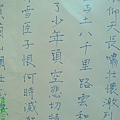 仰長嘯壯懷激烈
土八千里路雲和
了少年頭空悲切
雪臣子恨何時滅